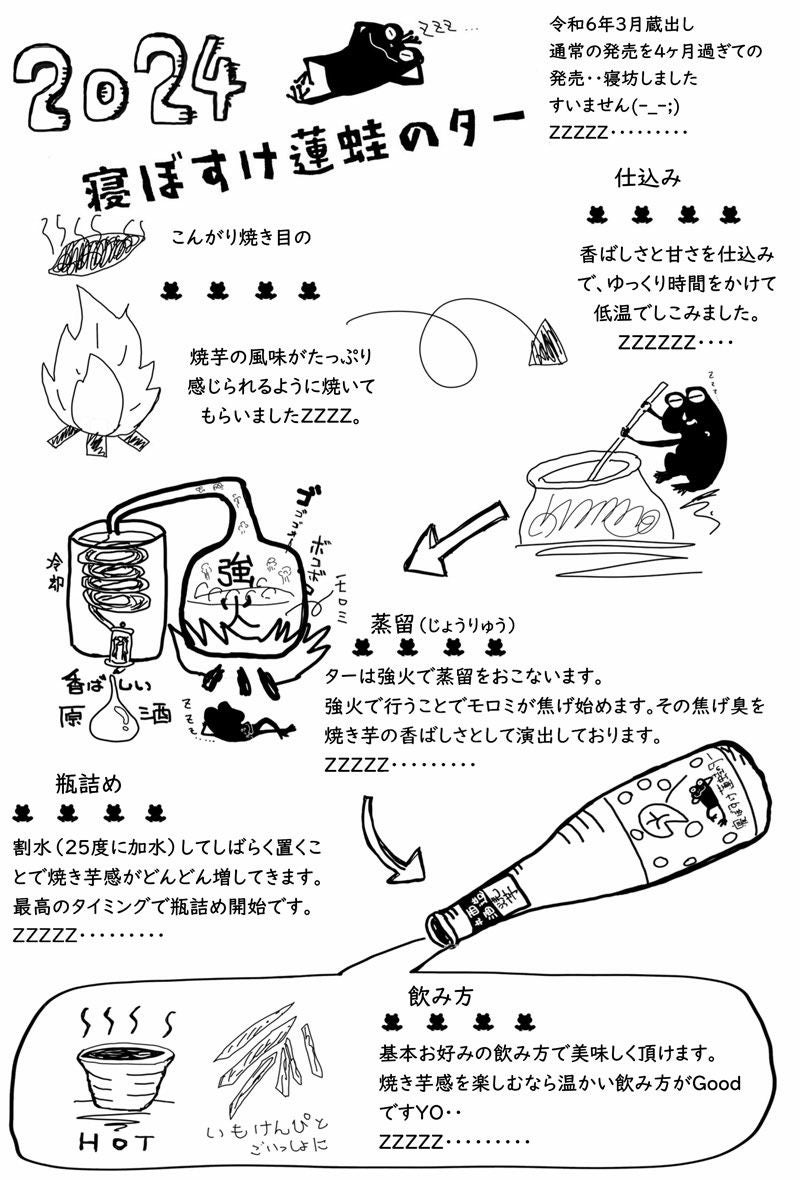 2024
zzzz...
寝ぼすけ蓮蛙のター
令和6年3月蔵出し
通常の発売を4ヶ月過ぎての
発売・・寝坊しました
すいません(-_-;)
ZZZZZ・・・・・・・・・
こんがり焼き目の
焼芋の風味がたっぷり
感じられるように焼いて
もらいましたZZZZ。
仕込み
香ばしさと甘さを仕込み
で、ゆっくり時間をかけて
低温でしこみました。
ZZZZZZ・・・・
zzz...
冷却
強
火
ボコボコ
モロミ
香ばしい
原酒
zzz...
蒸留(じょうりゅう)
ターは強火で蒸留をおこないます。
強火で行うことでモロミが焦げ始めます。その焦げ臭を
焼き芋の香ばしさとして演出しております。
ZZZZZ・・・・・・・・・
瓶詰め
割水(25度に加水)してしばらく置くこ
とで焼き芋感がどんどん増してきます。
最高のタイミングで瓶詰め開始です。
ZZZZZ・・・・・・・・・
HOT
いもけんぴと
ごいっしょに
飲み方
基本お好みの飲み方で美味しく頂けます。
焼き芋感を楽しむなら温かい飲み方がGood
ですYO・・
ZZZZZ・・・・・・・・・